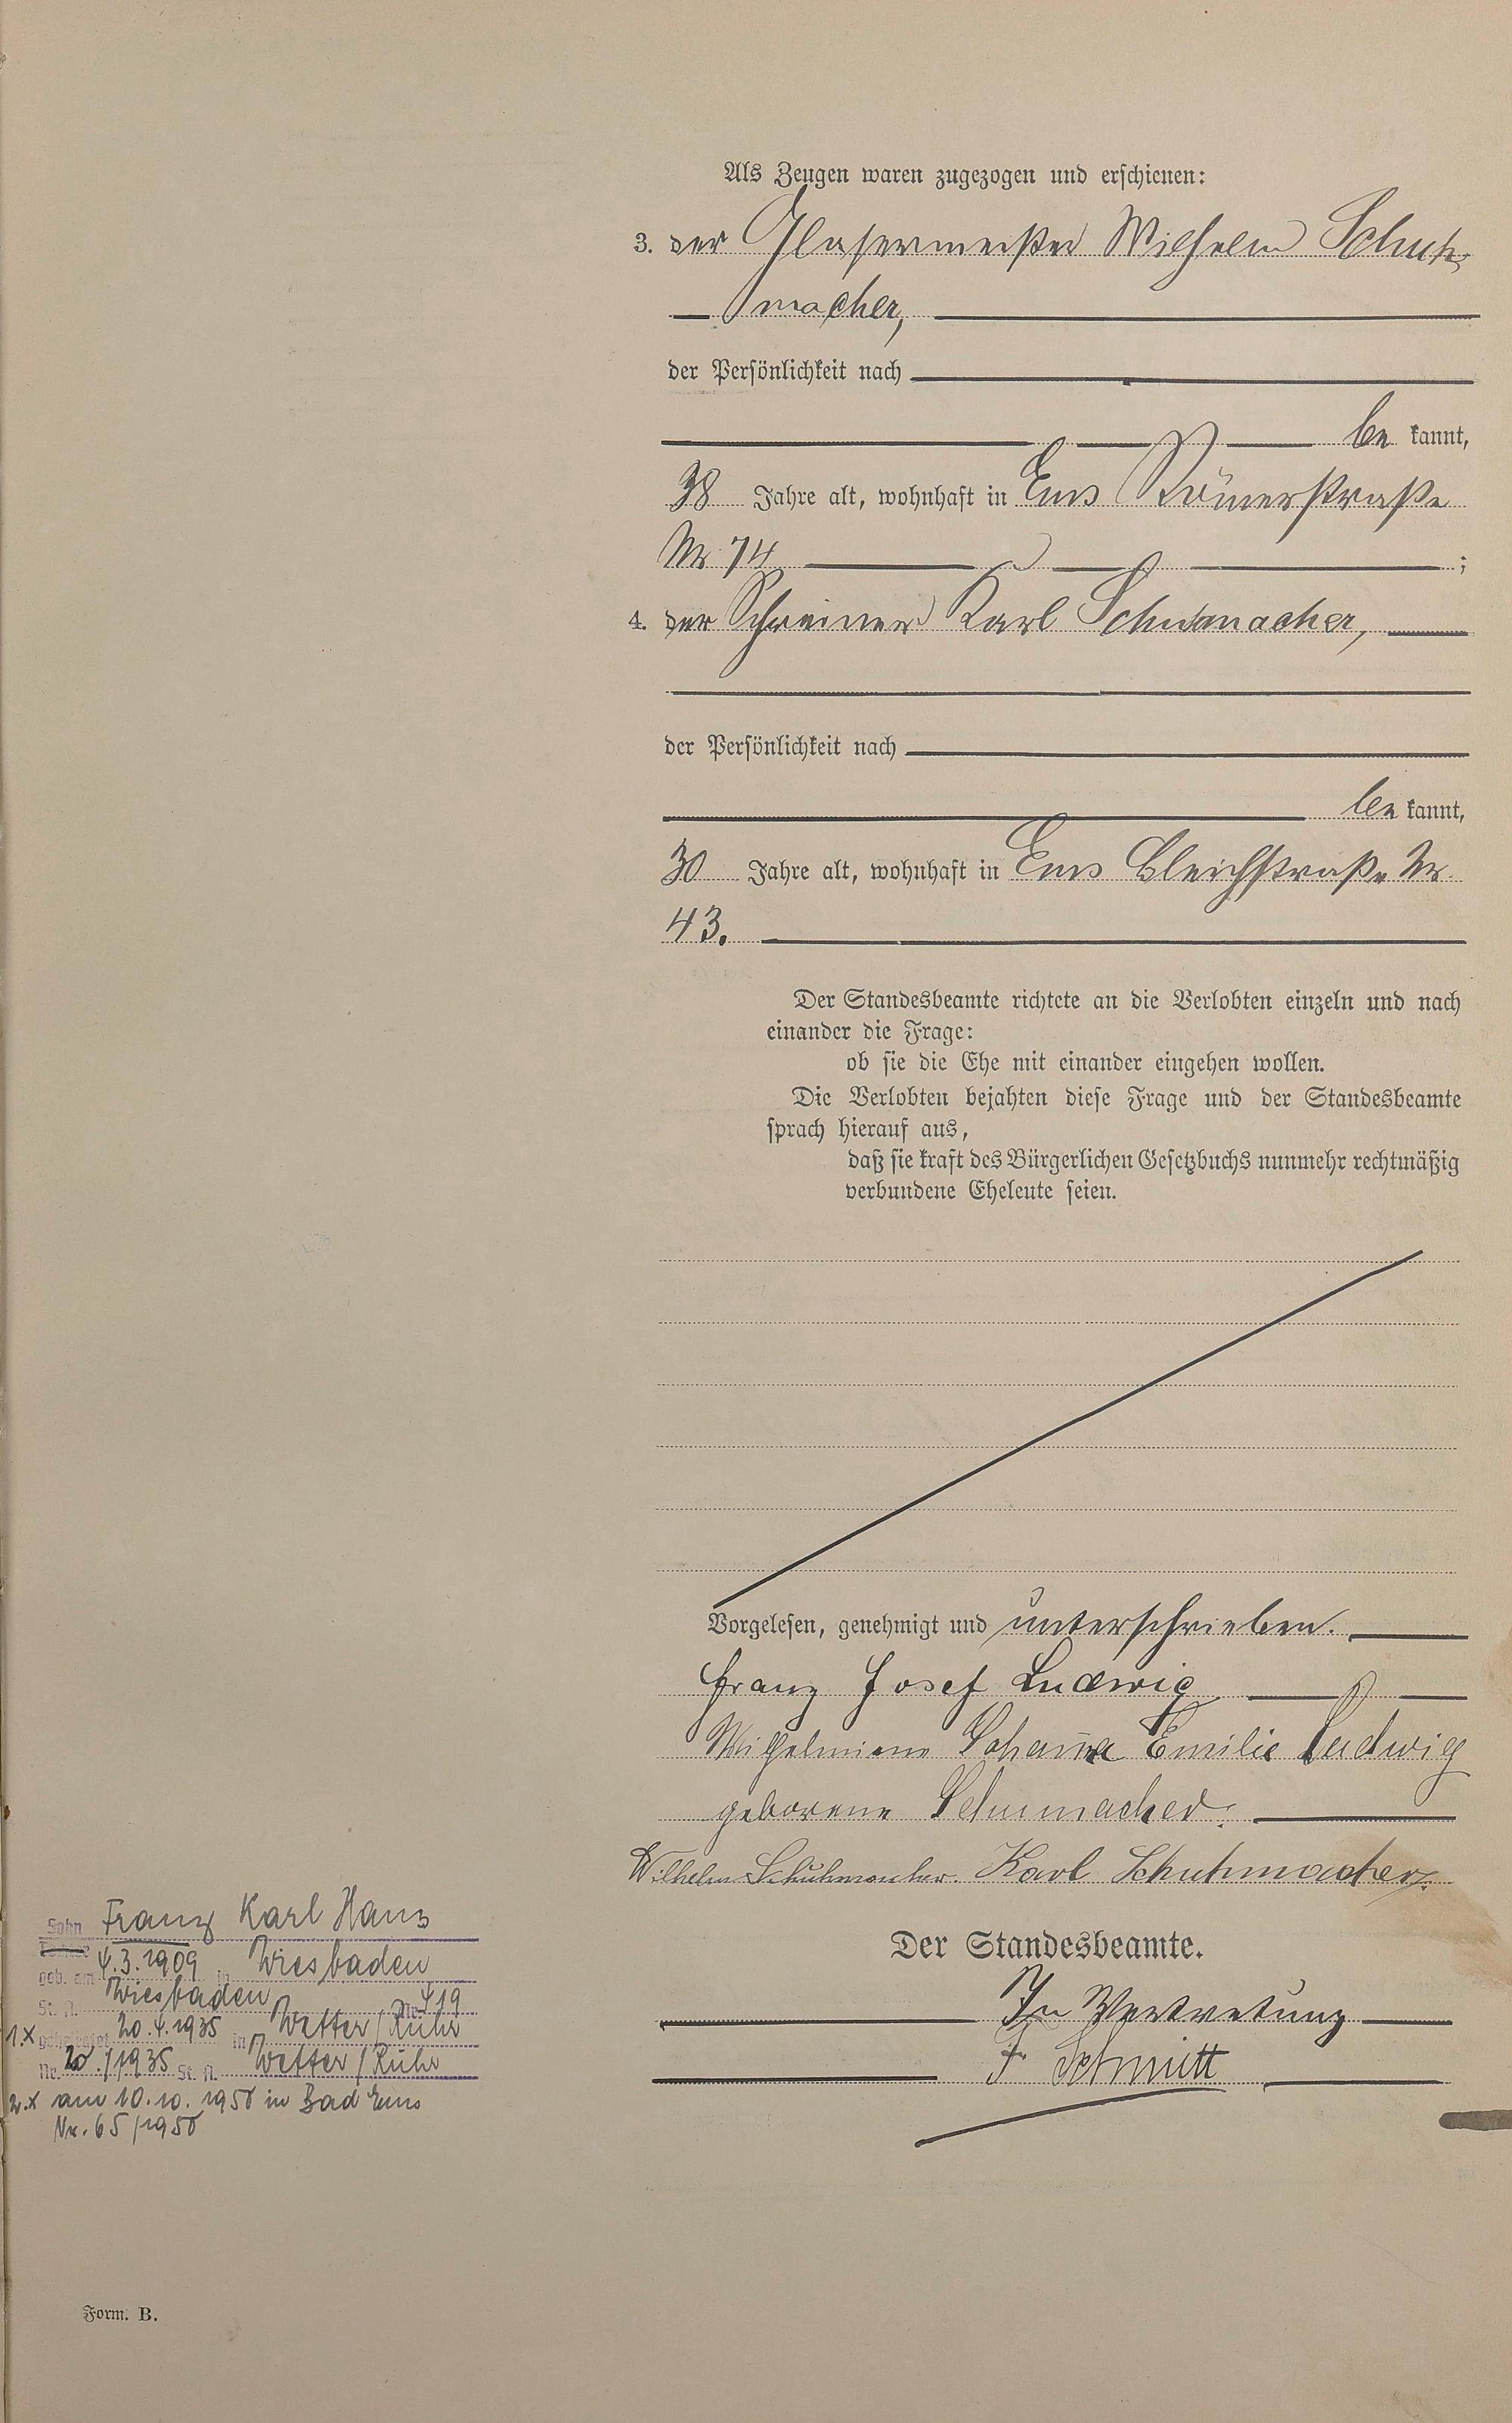 Als Zeugen waren zugezogen und erschienen:
3. der Glasermeister Wilhelm Schuh-
macher,
der Persönlichkeit nach
be kannt,
38 Jahre alt, wohnhaft in Ems Römerstraße
Nr 74 ;
4. der Schreiner Karl Schumacher,
der Persönlichkeit nach
be kannt,
30 Jahre alt, wohnhaft in Ems Bleichstraße Nr.
43.
Der Standesbeamte richtete an die Verlobten einzeln und nach
einander die Frage:
ob sie die Ehe mit einander eingehen wollen.
Die Verlobten bejahten diese Frage und der Standesbeamte
sprach hierauf aus,
daß sie kraft des Bürgerlichen Gesetzbuchs nunmehr rechtmäßig
verbundene Eheleute seien.
Vorgelesen, genehmigt und unterschrieben.
Franz Josef Ludwig
Wilhelmine Johanna Emilie Ludwig
geborene Schumacher.
Wilhelm Schuhmacher. Karl Schuhmacher.
Der Standesbeamte.
In Vertretung
F. Schmitt
Sohn Franz Karl Hans
Tochter
geb. am 4.3.1909 in Wiesbaden
St. A. Wiesbaden Nr. 419
1.x geheiratet 20.4.1935 in Wetter/Ruhr
Nr. 20./1935 St. A. Wetter/Ruhr
2.x am 10.10.1950 in Bad Ems
Nr. 65/1950
Form. B.